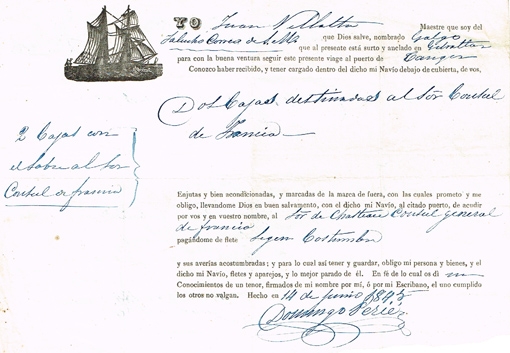 YO Juan Villalta Maestre que soy del
Falucho Correo de S.M. que Dios salve, nombrado Galgo
que al presente está surto y anclado en Gibraltar
para con la buena ventura seguir este presente viage al puerto de Tanger
Conozco haber recibido, y tener cargado dentro del dicho mi Navio debajo de cubierta, de vos,
Dos Cajas destinadas al Sór Consul
de Francia
2 Cajas con
el sobre al Sor
Consul de francia
Enjutas y bien acondicionadas, y marcadas de la marca de fuera, con las cuales prometo y me
obligo, llevandome Dios en buen salvamento, con el dicho mi Navio, al citado puerto, de acudir
por vos y en vuestro nombre, al Sór de Chasteau Consul General
de francia
pagándome de flete Segun Costumbre
y sus averias acostumbradas; y para lo cual asi tener y guardar, obligo mi persona y bienes, y el
dicho mi Navio, fletes y aparejos, y lo mejor parado de él. En fé de lo cual os dí un
Conocimientos de un tenor, firmados de mi nombre por mi, ó por mi Escribano, el uno cumplido
los otros no valgan. Hecho en 14 de junio 1845
Domingo Perié